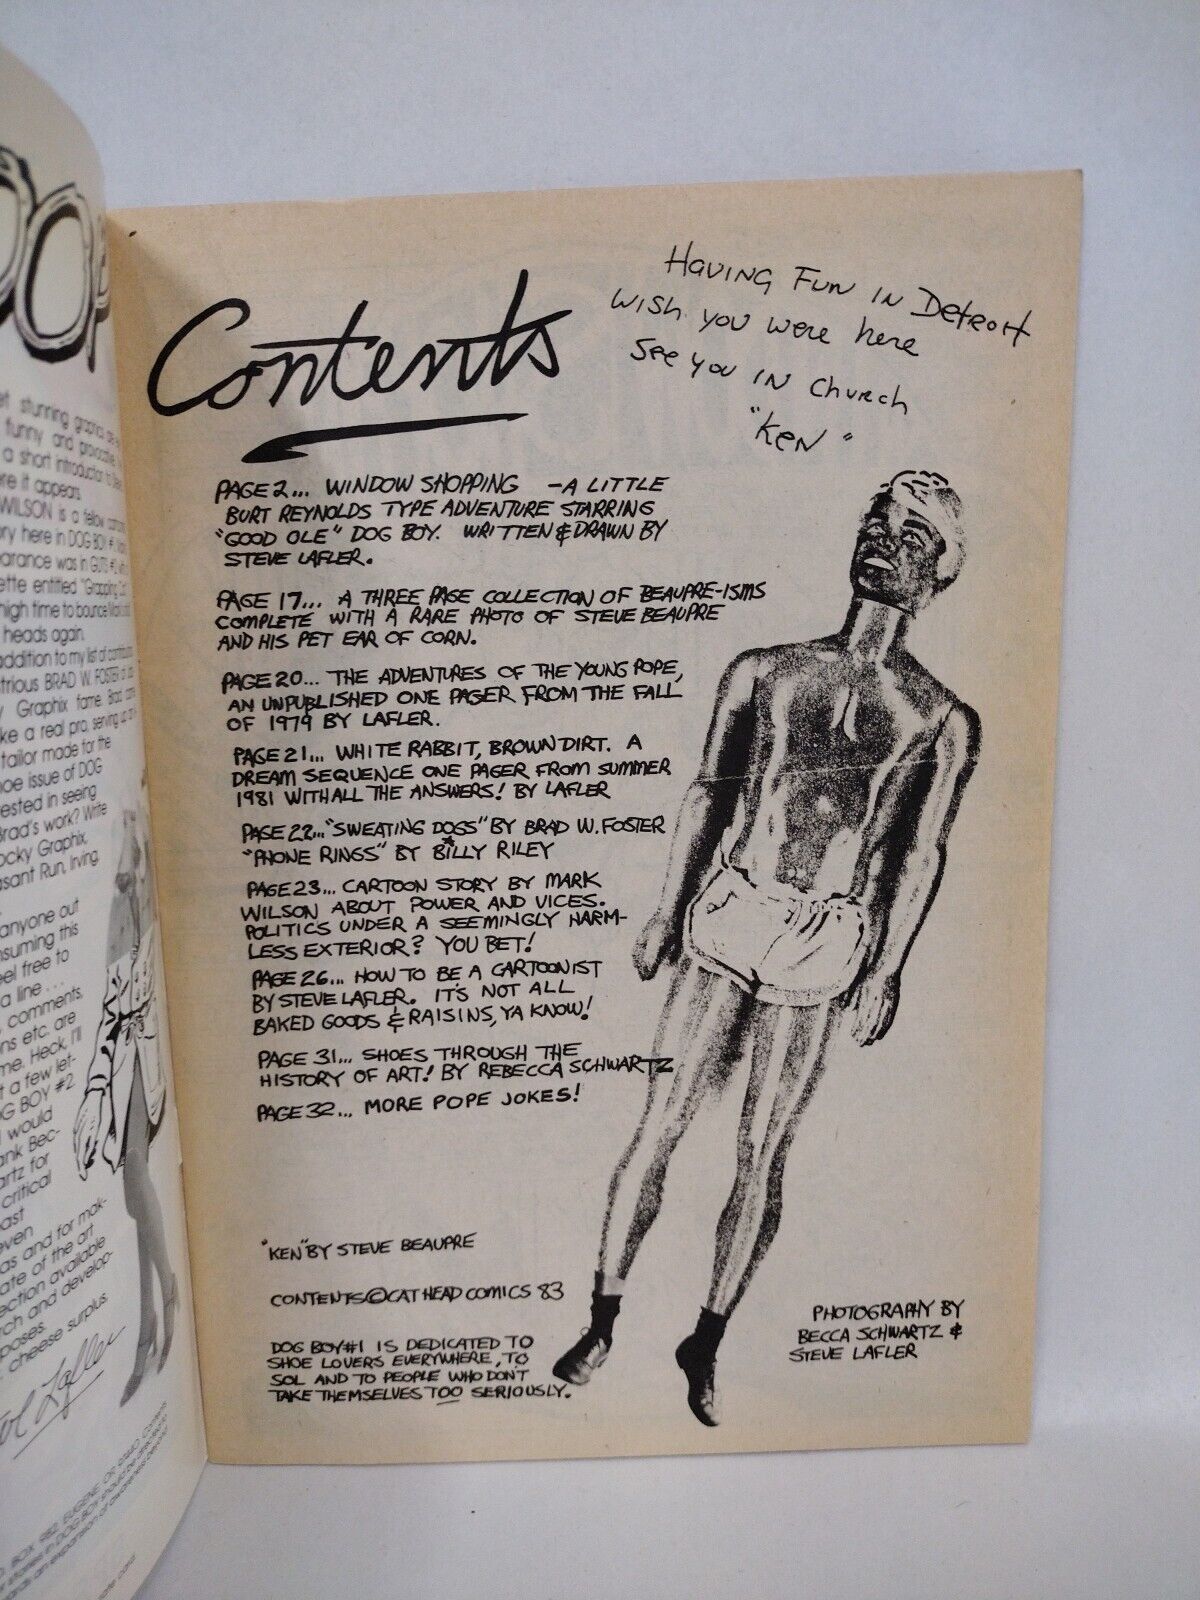 OOP
et stunning graphics
funny and provocative
a short introduction to
ere it appears
WILSON is a fellow
ory here in DOG BOY #1
earance was in GUTS #1
ette entitled "Grapping
high time to bounce Mark
heads again.
addition to my list of
strious BRAD W. FOSTER of
y Graphix fame. Brad
ke a real pro, serving up
tailor made for the
hoe issue of DOG
ested in seeing
Brad's work? Write
ocky Graphix,
asant Run, Irving,
anyone out
nsuming this
eel free to
a line ...
, comments,
ns etc. are
me. Heck, I'll
t a few let-
OG BOY #2
I would
ank Bec-
artz for
critical
ast
even
as and for mak-
ate of the art
ection available
rch and develop-
poses.
cheese surplus.
Lafler
BOX 982, EUGENE, OR 97440.
Contents
Having Fun in Detroit
Wish you were here
See you in Church
"Ken"
PAGE 2... WINDOW SHOPPING —A LITTLE
BURT REYNOLDS TYPE ADVENTURE STARRING
"GOOD OLE" DOG BOY. WRITTEN & DRAWN BY
STEVE LAFLER.
PAGE 17... A THREE PAGE COLLECTION OF BEAUPRE-ISMS
COMPLETE WITH A RARE PHOTO OF STEVE BEAUPRE
AND HIS PET EAR OF CORN.
PAGE 20... THE ADVENTURES OF THE YOUNG POPE,
AN UNPUBLISHED ONE PAGER FROM THE FALL
OF 1979 BY LAFLER.
PAGE 21... WHITE RABBIT, BROWN DIRT. A
DREAM SEQUENCE ONE PAGER FROM SUMMER
1981 WITH ALL THE ANSWERS! BY LAFLER
PAGE 22... "SWEATING DOGS" BY BRAD W. FOSTER
"PHONE RINGS" BY BILLY RILEY
PAGE 23... CARTOON STORY BY MARK
WILSON ABOUT POWER AND VICES.
POLITICS UNDER A SEEMINGLY HARM-
LESS EXTERIOR? YOU BET!
PAGE 26... HOW TO BE A CARTOONIST
BY STEVE LAFLER. IT'S NOT ALL
BAKED GOODS & RAISINS, YA KNOW!
PAGE 31... SHOES THROUGH THE
HISTORY OF ART! BY REBECCA SCHWARTZ
PAGE 32... MORE POPE JOKES!
"KEN" BY STEVE BEAUPRE
CONTENTS © CAT HEAD COMICS 83
DOG BOY #1 IS DEDICATED TO
SHOE LOVERS EVERYWHERE, TO
SOL AND TO PEOPLE WHO DON'T
TAKE THEMSELVES TOO SERIOUSLY.
PHOTOGRAPHY BY
BECCA SCHWARTZ &
STEVE LAFLER